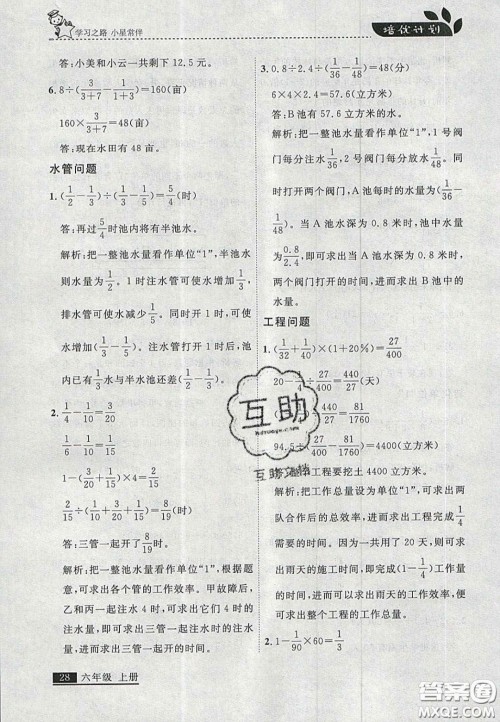 学习之路 小星常伴
培优计划
答:小美和小云一共剩下 12.5 元。
6. 8÷(3/(3+7)-1/(3+1))=160(亩)
160×3/(3+7)=48(亩)
答:现在水田有 48 亩。
水管问题
1. (1/2-1/3)÷(1/3-1/5)=5/4(时)
答:再过5/4时池内将有半池水。
解析:把一整池水量看作单位“1”,半池水
则水量为1/2。1 时注水管可使水增加1/5,
排水管可使水减少1/3。同时开 1 时,可使
水减少(1/3-1/5)。注水管打开 1 时后,池
内已有1/3水与半水池还差(1/2-1/3)。
2.
1/4-1/10=3/20
1/6-1/10=1/15
1-(3/20+1/15)×4=2/15
2/15÷(3/20+1/15+1/30)=8/19(时)
答:三管一起开了8/19时。
解析:把一整池水量看作单位“1”,根据题
意,可求出各个管的工作效率。甲故障后,
乙和丙一起注水 4 时,可求出它们 4 时的
注水量,进而求出三管一起开时的注水
量,即可求出三管一起注水的时间。
28 六年级 上册
3. 0.8÷2.4×(1/36-1/48)=
6×4×2.4=57.6(立方米)
答:B 池有 57.6 立方米的水。
解析:把一池水量看作单位“1”,1 号阀
门每分注水1/36,2 号阀门每分放水1/48。同
时打开两个阀门,A 池每时的水量为(1/36-
1/48)。当 A 池水深 0.8 米时,池中水量
为0.8/2.4,即可求出当 A 池水深 0.8 米时,
两个阀门打开的时间,进而求出 B 池中的
水量。
工程问题
1. (1/32+1/40)×(1+20%)=27/400
94.5÷(27/400-81/1760)=4400(立方米)
工程要挖土 4400 立方米。
解析:把工作总量设为单位“1”,可求出两
队合作后的总效率,进而求出工程完成
需要的时间。因为一共用了 20 天,则可求
出雨天的施工时间,即完成(1-1/4)工作量
的时间,进而可以求出雨天效率,正好可以
求出整个工程的工作总量。
2. 1-1/90×60=1/3
互助
互助文档
答案圈